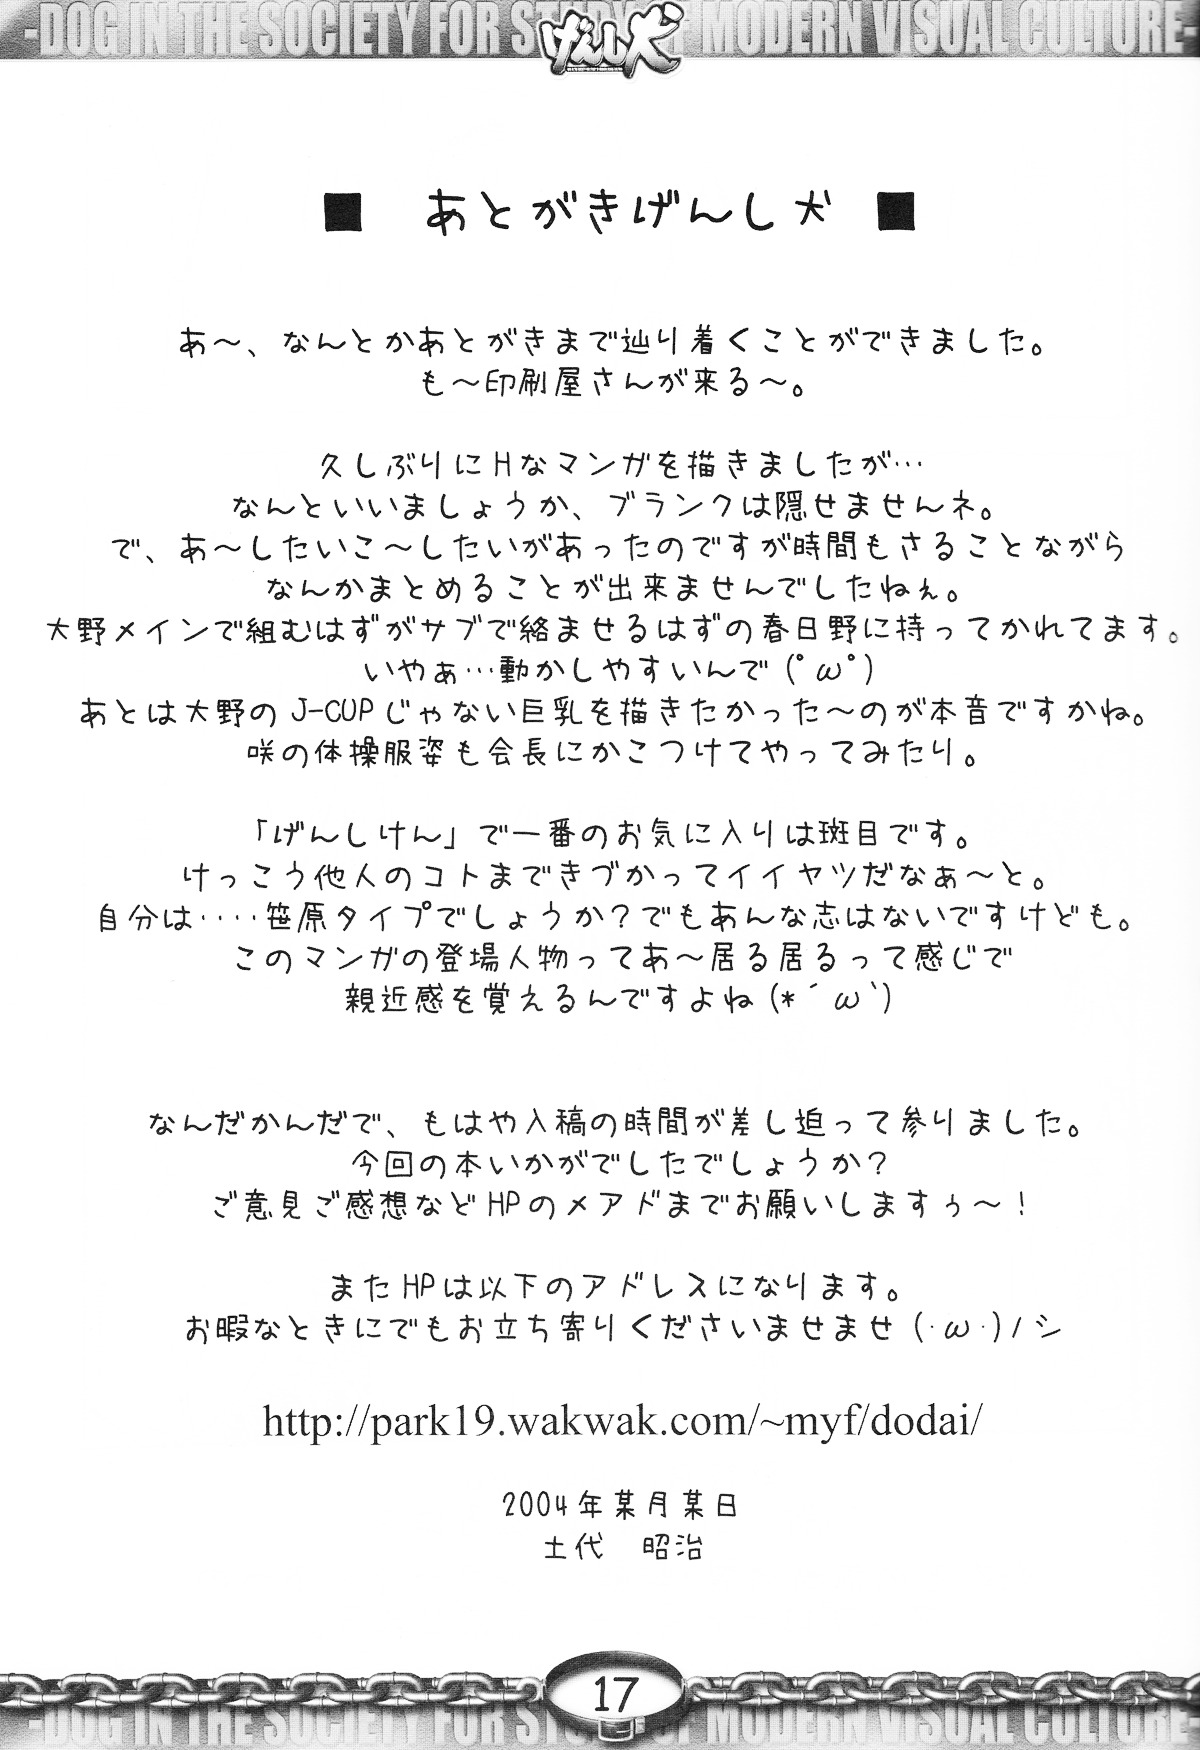 -DOG IN THE SOCIETY FOR STUDY OF MODERN VISUAL CULTURE-
げんし犬
■ あとがきげんし犬 ■
あ～、なんとかあとがきまで辿り着くことができました。
も～印刷屋さんが来る～。
久しぶりにHなマンガを描きましたが…
なんといいましょうか、ブランクは隠せませんネ。
で、あ～したいこ～したいがあったのですが時間もさることながら
なんかまとめることが出来ませんでしたねぇ。
大野メインで組むはずがサブで絡ませるはずの春日野に持ってかれてます。
いやぁ…動かしやすいんで(ﾟωﾟ)
あとは大野のJ-CUPじゃない巨乳を描きたかった～のが本音ですかね。
咲の体操服姿も会長にかこつけてやってみたり。
「げんしけん」で一番のお気に入りは斑目です。
けっこう他人のコトまできづかってイイヤツだなぁ～と。
自分は‥‥笹原タイプでしょうか?でもあんな志はないですけども。
このマンガの登場人物ってあ～居る居るって感じで
親近感を覚えるんですよね(*´ω`)
なんだかんだで、もはや入稿の時間が差し迫って参りました。
今回の本いかがでしたでしょうか?
ご意見ご感想などHPのメアドまでお願いしますぅ～!
またHPは以下のアドレスになります。
お暇なときにでもお立ち寄りくださいませませ(･ω･)ノシ
http://park19.wakwak.com/~myf/dodai/
2004年某月某日
土代 昭治
17
-DOG IN THE SOCIETY FOR STUDY OF MODERN VISUAL CULTURE-